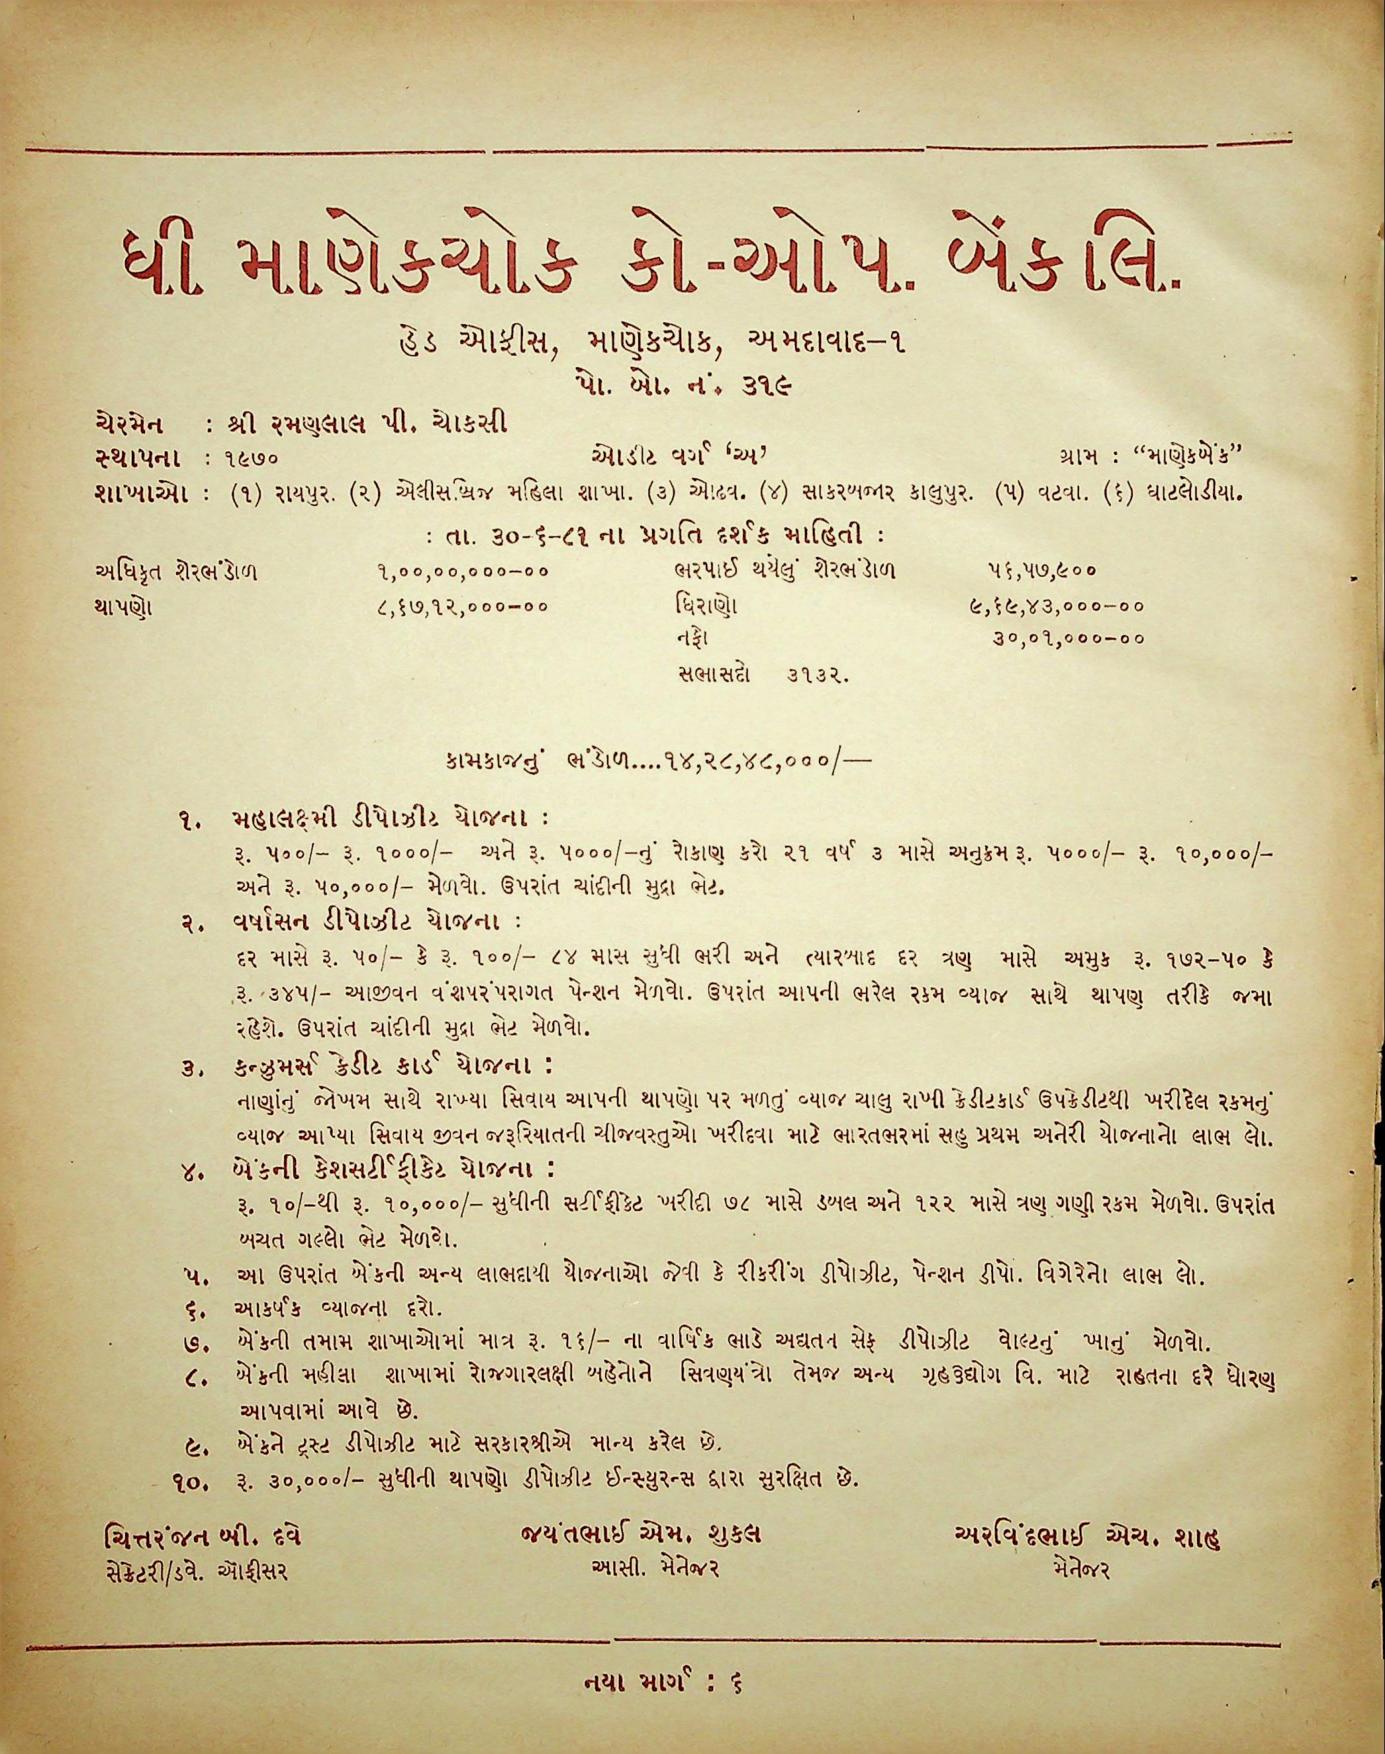 ધી માણેકચોક કો-ઓપ. બેંક લિ.
હેડ ઓફીસ, માણેકચોક, અમદાવાદ–૧
પો. બો. નં. ૩૧૯
ચેરમેન : શ્રી રમણલાલ પી. ચોકસી
સ્થાપના : ૧૯૭૦ ઓડીટ વર્ગ ‘અ’ ગ્રામ : “માણેકબેંક”
શાખાઓ : (૧) રાયપુર. (૨) એલીસબ્રિજ મહિલા શાખા. (૩) ઓઢવ. (૪) સાકરબજાર કાલુપુર. (૫) વટવા. (૬) ઘાટલોડીયા.
: તા. ૩૦-૬-૮૧ ના પ્રગતિ દર્શક માહિતી :
અધિકૃત શેરભંડોળ ૧,૦૦,૦૦,૦૦૦–૦૦ ભરપાઈ થયેલું શેરભંડોળ ૫૬,૫૭,૯૦૦
થાપણો ૮,૬૭,૧૨,૦૦૦–૦૦ ધિરાણો ૯,૬૯,૪૩,૦૦૦–૦૦
નફો ૩૦,૦૧,૦૦૦–૦૦
સભાસદો ૩૧૩૨.
કામકાજનું ભંડોળ....૧૪,૨૮,૪૮,૦૦૦/—
૧. મહાલક્ષ્મી ડીપોઝીટ યોજના :
રૂ. ૫૦૦/– રૂ. ૧૦૦૦/– અને રૂ. ૫૦૦૦/–નું રોકાણ કરો ૨૧ વર્ષ ૩ માસે અનુક્રમ રૂ. ૫૦૦૦/– રૂ. ૧૦,૦૦૦/–
અને રૂ. ૫૦,૦૦૦/– મેળવો. ઉપરાંત ચાંદીની મુદ્રા ભેટ.
૨. વર્ષાસન ડીપોઝીટ યોજના :
દર માસે રૂ. ૫૦/– કે રૂ. ૧૦૦/– ૮૪ માસ સુધી ભરી અને ત્યારબાદ દર ત્રણ માસે અમુક રૂ. ૧૭૨–૫૦ કે
રૂ. ૩૪૫/– આજીવન વંશપરંપરાગત પેન્શન મેળવો. ઉપરાંત આપની ભરેલ રકમ વ્યાજ સાથે થાપણ તરીકે જમા
રહેશે. ઉપરાંત ચાંદીની મુદ્રા ભેટ મેળવો.
૩. કન્ઝુમર્સ ક્રેડીટ કાર્ડ યોજના :
નાણાંનું જોખમ સાથે રાખ્યા સિવાય આપની થાપણો પર મળતું વ્યાજ ચાલુ રાખી ક્રેડીટકાર્ડ ઉપક્રેડીટથી ખરીદેલ રકમનું
વ્યાજ આપ્યા સિવાય જીવન જરૂરિયાતની ચીજવસ્તુઓ ખરીદવા માટે ભારતભરમાં સહુ પ્રથમ અનેરી યોજનાનો લાભ લો.
૪. બેંકની કેશસર્ટીફીકેટ યોજના :
રૂ. ૧૦/–થી રૂ. ૧૦,૦૦૦/– સુધીની સર્ટીફીકેટ ખરીદી ૭૮ માસે ડબલ અને ૧૨૨ માસે ત્રણ ગણી રકમ મેળવો. ઉપરાંત
બચત ગલ્લો ભેટ મેળવો.
૫. આ ઉપરાંત બેંકની અન્ય લાભદાયી યોજનાઓ જેવી કે રીકરીંગ ડીપોઝીટ, પેન્શન ડીપો. વિગેરેનો લાભ લો.
૬. આકર્ષક વ્યાજના દરો.
૭. બેંકની તમામ શાખાઓમાં માત્ર રૂ. ૧૬/– ના વાર્ષિક ભાડે અદ્યતન સેફ ડીપોઝીટ વોલ્ટનું ખાનું મેળવો.
૮. બેંકની મહીલા શાખામાં રોજગારલક્ષી બહેનોને સિવણયંત્રો તેમજ અન્ય ગૃહઉદ્યોગ વિ. માટે રાહતના દરે ધોરણ
આપવામાં આવે છે.
૯. બેંકને ટ્રસ્ટ ડીપોઝીટ માટે સરકારશ્રીએ માન્ય કરેલ છે.
૧૦. રૂ. ૩૦,૦૦૦/– સુધીની થાપણો ડીપોઝીટ ઈન્સ્યુરન્સ દ્વારા સુરક્ષિત છે.
ચિત્તરંજન બી. દવે જયંતભાઈ એમ. શુકલ અરવિંદભાઈ એચ. શાહ
સેક્રેટરી/ડવે. ઑફીસર આસી. મેનેજર મેનેજર
નયા માર્ગ : ૬